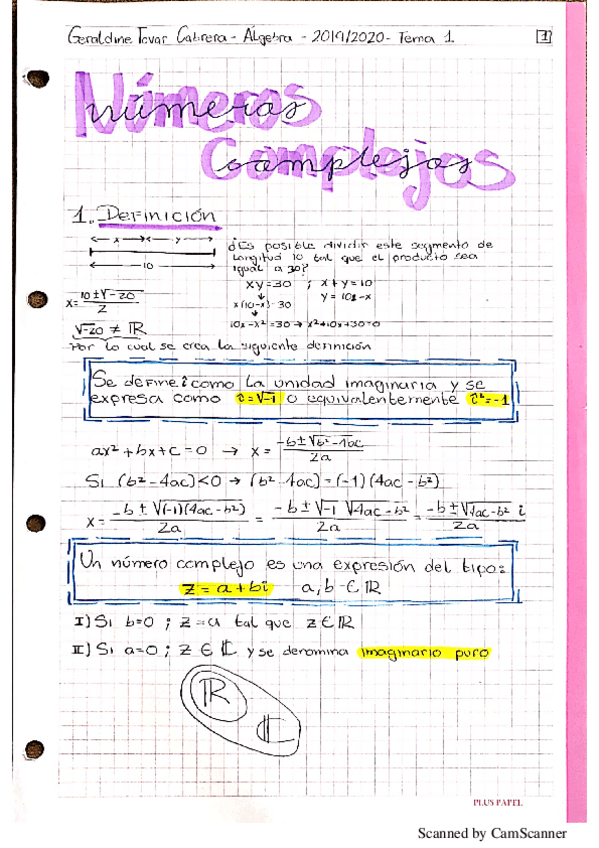 Geraldine Tovar Cabrera - Álgebra - 2019/2020 - Tema 1. 1
Números
complejos
1. Definición
x y
10
¿Es posible dividir este segmento de
longitud 10 tal que el producto sea
igual a 30?
xy=30 ; x+y=10
y = 10-x
x(10-x)=30
10x-x²=30 → x²+10x+30=0
x = 10±√-20 / 2
√-20 ≠ ℝ
Por lo cual se crea la siguiente definición
Se define i como la unidad imaginaria y se
expresa como i=√-1 o equivalentemente i²=-1
ax²+bx+c=0 → x = -b±√b²-4ac / 2a
Si (b²-4ac)<0 → (b²-4ac)=(-1)(4ac-b²)
x = -b±√(-1)(4ac-b²) / 2a = -b±√-1 √4ac-b² / 2a = -b±√4ac-b² i / 2a
Un número complejo es una expresión del tipo:
z=a+bi a,b ∈ ℝ
I) Si b=0 ; z=a tal que z∈ℝ
II) Si a=0 ; z ∈ ℂ y se denomina imaginario puro
ℝ
ℂ
PLUS PAPEL
Scanned by CamScanner